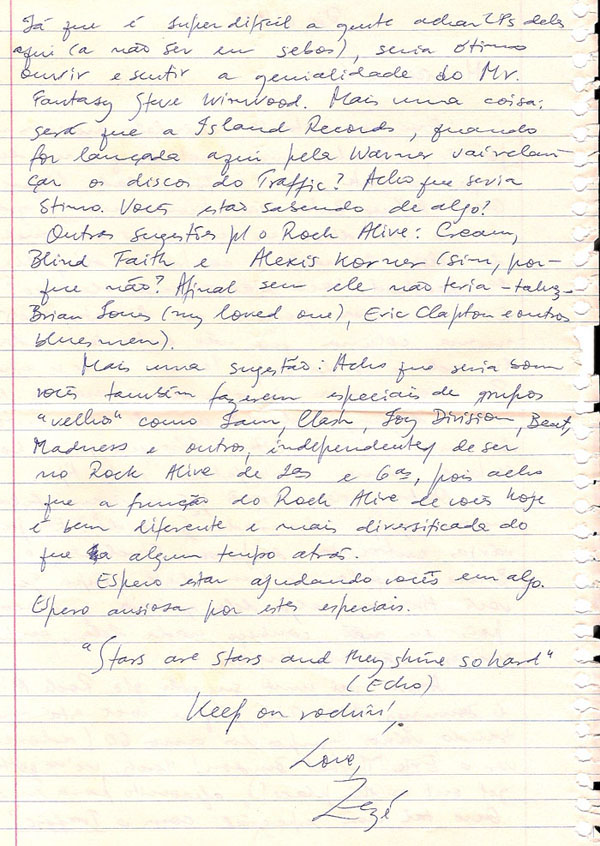 Já que é super difícil a gente achar LPs dels
aqui (a não ser em sebos), seria ótimo
ouvir e sentir a genialidade do Mr.
Fantasy Steve Winwood. Mais uma coisa:
será que a Island Records, quando
for lançada aqui pela Warner vai relan-
çar os discos do Traffic? Acho que seria
ótimo. Vocês estão sabendo de algo?
Outras sugestões p/ o Rock Alive: Cream,
Blind Faith e Alexis Korner (sim, por-
que não? Afinal sem ele não teria - talvez -
Brian Jones (my loved one), Eric Clapton e outros
bluesmen).
Mais uma sugestão: Acho que seria bom
vocês também fazerem especiais de grupos
"velhos" como Jam, Clash, Joy Division, Beat,
Madness e outros, independente de ser
no Rock Alive de 2as e 6as, pois acho
que a função do Rock Alive de vocês hoje
é bem diferente e mais diversificada do
que a algum tempo atrás.
Espero estar ajudando vocês em algo.
Espero ansiosa por estes especiais.
"Stars are stars and they shine so hard"
(Echo)
Keep on rockin'!
Love,
Zezé